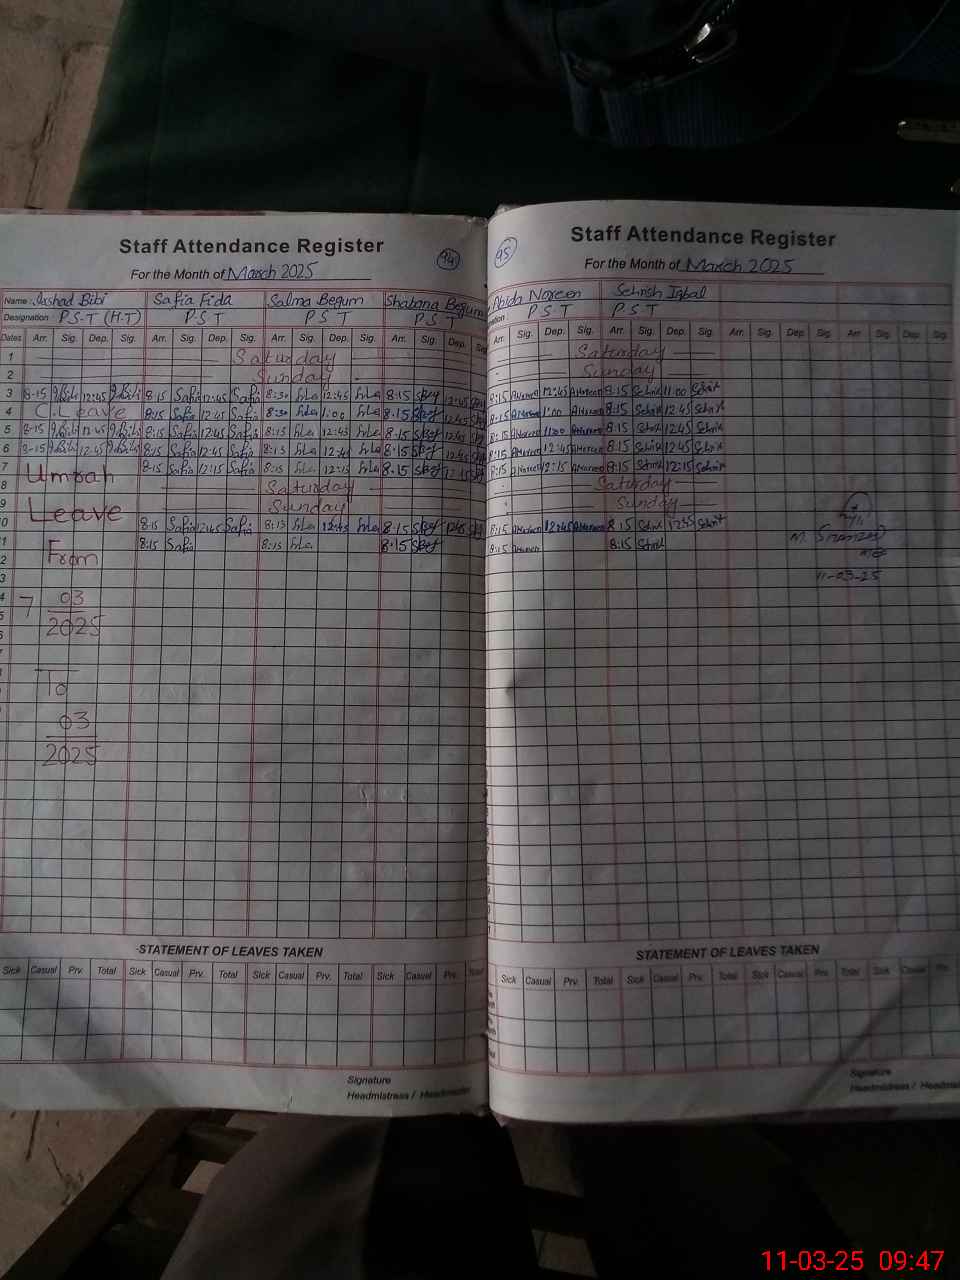 Staff Attendance Register
94
For the Month of March 2025
Name: Irshad Bibi Safia Fida Salma Begum Shabana Begum
Designation P.S.T (H.T) P S T P S T P S T
Dates Arr. Sig. Dep. Sig. Arr. Sig. Dep. Sig. Arr. Sig. Dep. Sig. Arr. Sig. Dep. Sig
1 Saturday
2 Sunday
3 8-15 12:45 8:15 Safia 12:45 Safia 8:30 12:45 8:15 12:45
4 C. Leave 8:15 Safia 12:45 Safia 8:30 1:00 8:15 12:45
5 8-15 12:45 8:15 Safia 12:45 Safia 8:15 12:45 8:15 12:45
6 8-15 12:45 8:15 Safia 12:45 Safia 8:15 12:45 8:15 12:45
7 Umrah 8:15 Safia 12:15 Safia 8:15 12:15 8:15 12:15
8 Saturday
9 Leave Sunday
0 8:15 Safia 12:45 Safia 8:15 12:45 8:15 12:45
1 8:15 Safia 8:15 8:15
2 From
3
4 7 03
5 2025
To
03
2025
STATEMENT OF LEAVES TAKEN
Sick Casual Prv. Total Sick Casual Prv. Total Sick Casual Prv. Total Sick Casual Prv. Total
Signature
Headmistress / Headmaster
95
Staff Attendance Register
For the Month of March 2025
Abida Noreen Sehrish Iqbal
P S T P S T
Arr. Sig. Dep. Sig. Arr. Sig. Dep. Sig. Arr. Sig. Dep. Sig. Arr. Sig. Dep. Sig.
Saturday
Sunday
8:15 ANoreen 12:45 ANoreen 8:15 Sehrish 11:00 Sehrish
8:15 ANoreen 1:00 ANoreen 8:15 Sehrish 12:45 Sehrish
8:15 ANoreen 11:00 ANoreen 8:15 Sehrish 12:45 Sehrish
8:15 ANoreen 12:45 ANoreen 8:15 Sehrish 12:45 Sehrish
8:15 ANoreen 12:15 ANoreen 8:15 Sehrish 12:15 Sehrish
Saturday
Sunday
8:15 ANoreen 12:45 ANoreen 8:15 Sehrish 12:45 Sehrish
8:15 ANoreen 8:15 Sehrish
11-03-25
STATEMENT OF LEAVES TAKEN
Sick Casual Prv. Total Sick Casual Prv. Total Sick Casual Prv. Total Sick Casual Prv.
Signature
Headmistress / Headmas
11-03-25 09:47